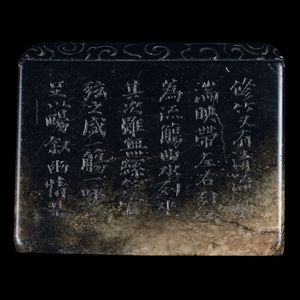 修竹又有清流激
湍暎帶左右引以
為流觴曲水列坐
其次雖無絲竹管
絃之盛一觴一詠
足以暢敘幽情是